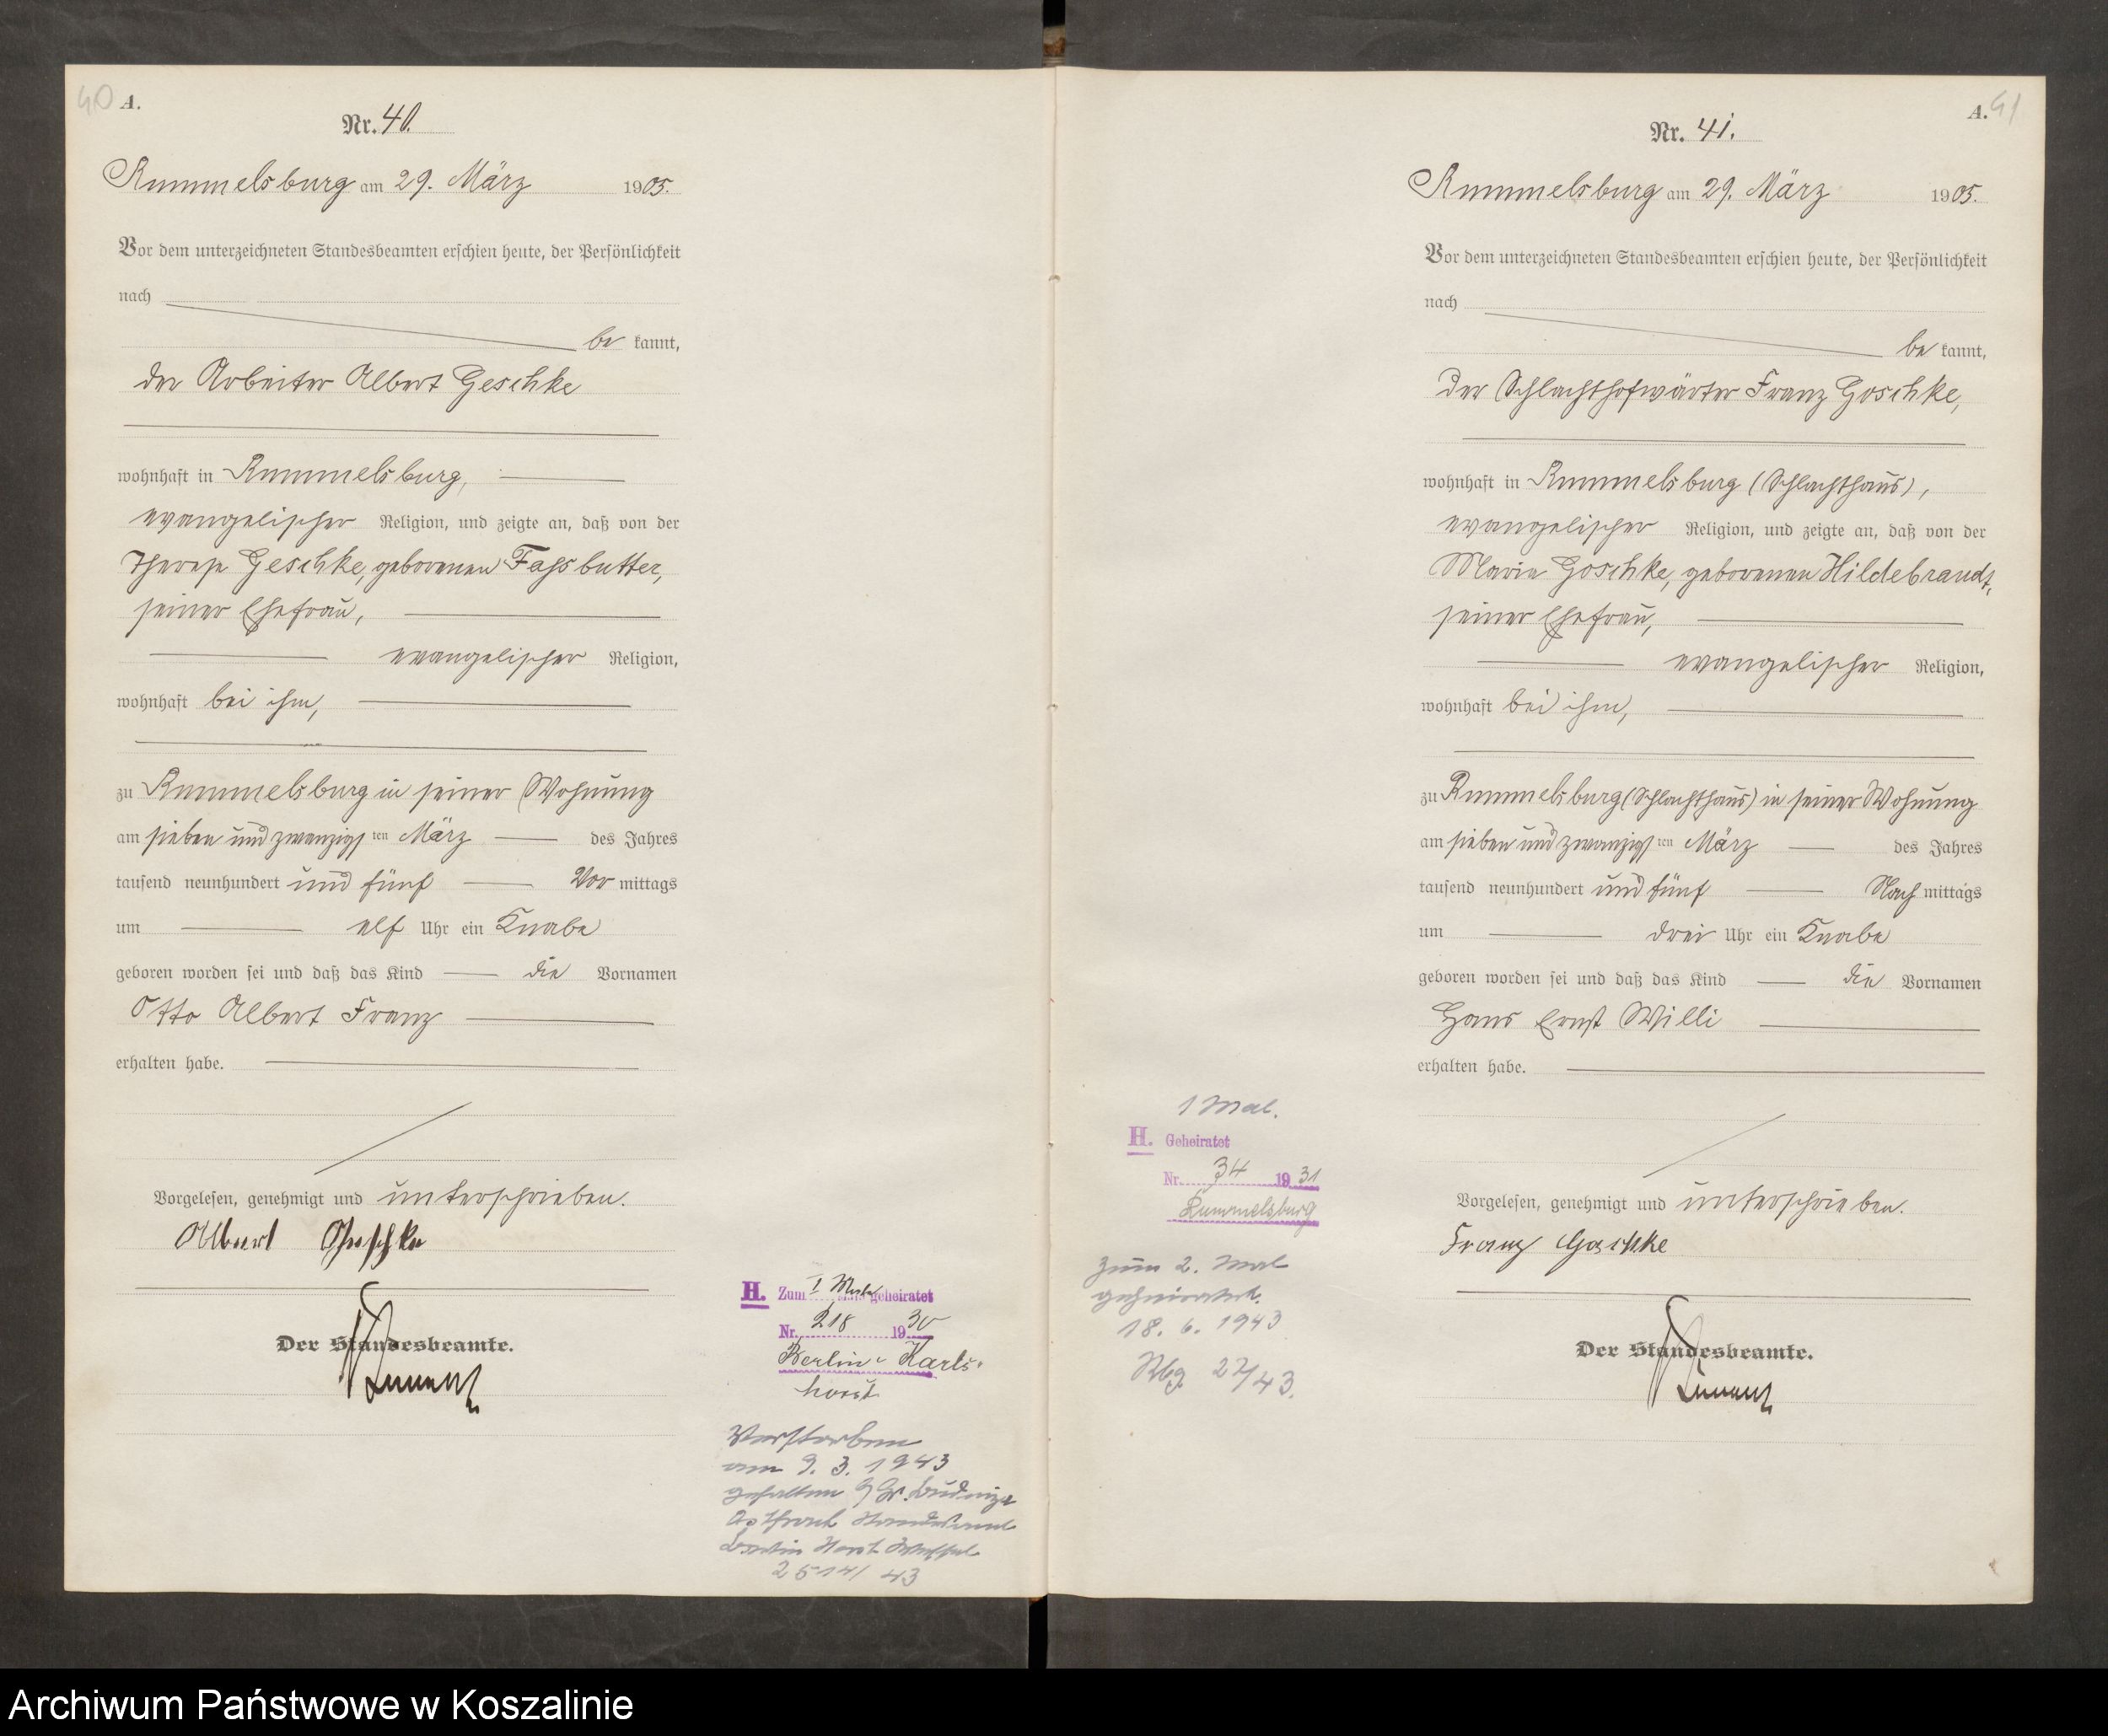 40 A.
Nr. 40.
Rummelsburg am 29. März 1905.
Vor dem unterzeichneten Standesbeamten erschien heute, der Persönlichkeit
nach
be kannt,
der Arbeiter Albert Geschke
wohnhaft in Rummelsburg,
evangelischer Religion, und zeigte an, daß von der
Therese Geschke, geborenen Fassbutter,
seiner Ehefrau,
evangelischer Religion,
wohnhaft bei ihm,
zu Rummelsburg in seiner Wohnung
am sieben und zwanzigsten März des Jahres
tausend neunhundert und fünf Vor mittags
um elf Uhr ein Knabe
geboren worden sei und daß das Kind die Vornamen
Otto Albert Franz
erhalten habe.
Vorgelesen, genehmigt und unterschrieben.
Albert Geschke
Der Standesbeamte.
H. Zum I Male geheiratet
Nr. 218 1930
Berlin-Karls-
horst
Verstorben
am 9. 3. 1943
Standesamt
Berlin Horst Wessel
2514/43
A. 41
Nr. 41.
Rummelsburg am 29. März 1905.
Vor dem unterzeichneten Standesbeamten erschien heute, der Persönlichkeit
nach
be kannt,
der Schlachthofwärter Franz Goschke,
wohnhaft in Rummelsburg (Schlachthaus),
evangelischer Religion, und zeigte an, daß von der
Marie Goschke, geborenen Hildebrandt,
seiner Ehefrau,
evangelischer Religion,
wohnhaft bei ihm,
zu Rummelsburg (Schlachthaus) in seiner Wohnung
am sieben und zwanzigsten März des Jahres
tausend neunhundert und fünf Nach mittags
um drei Uhr ein Knabe
geboren worden sei und daß das Kind die Vornamen
Hans Ernst Willi
erhalten habe.
Vorgelesen, genehmigt und unterschrieben.
Franz Goschke
Der Standesbeamte.
1 Mal.
H. Geheiratet
Nr. 34 1931
Rummelsburg
zum 2. Mal
geheiratet.
18. 6. 1943
Rbg. 27/43.
Archiwum Państwowe w Koszalinie